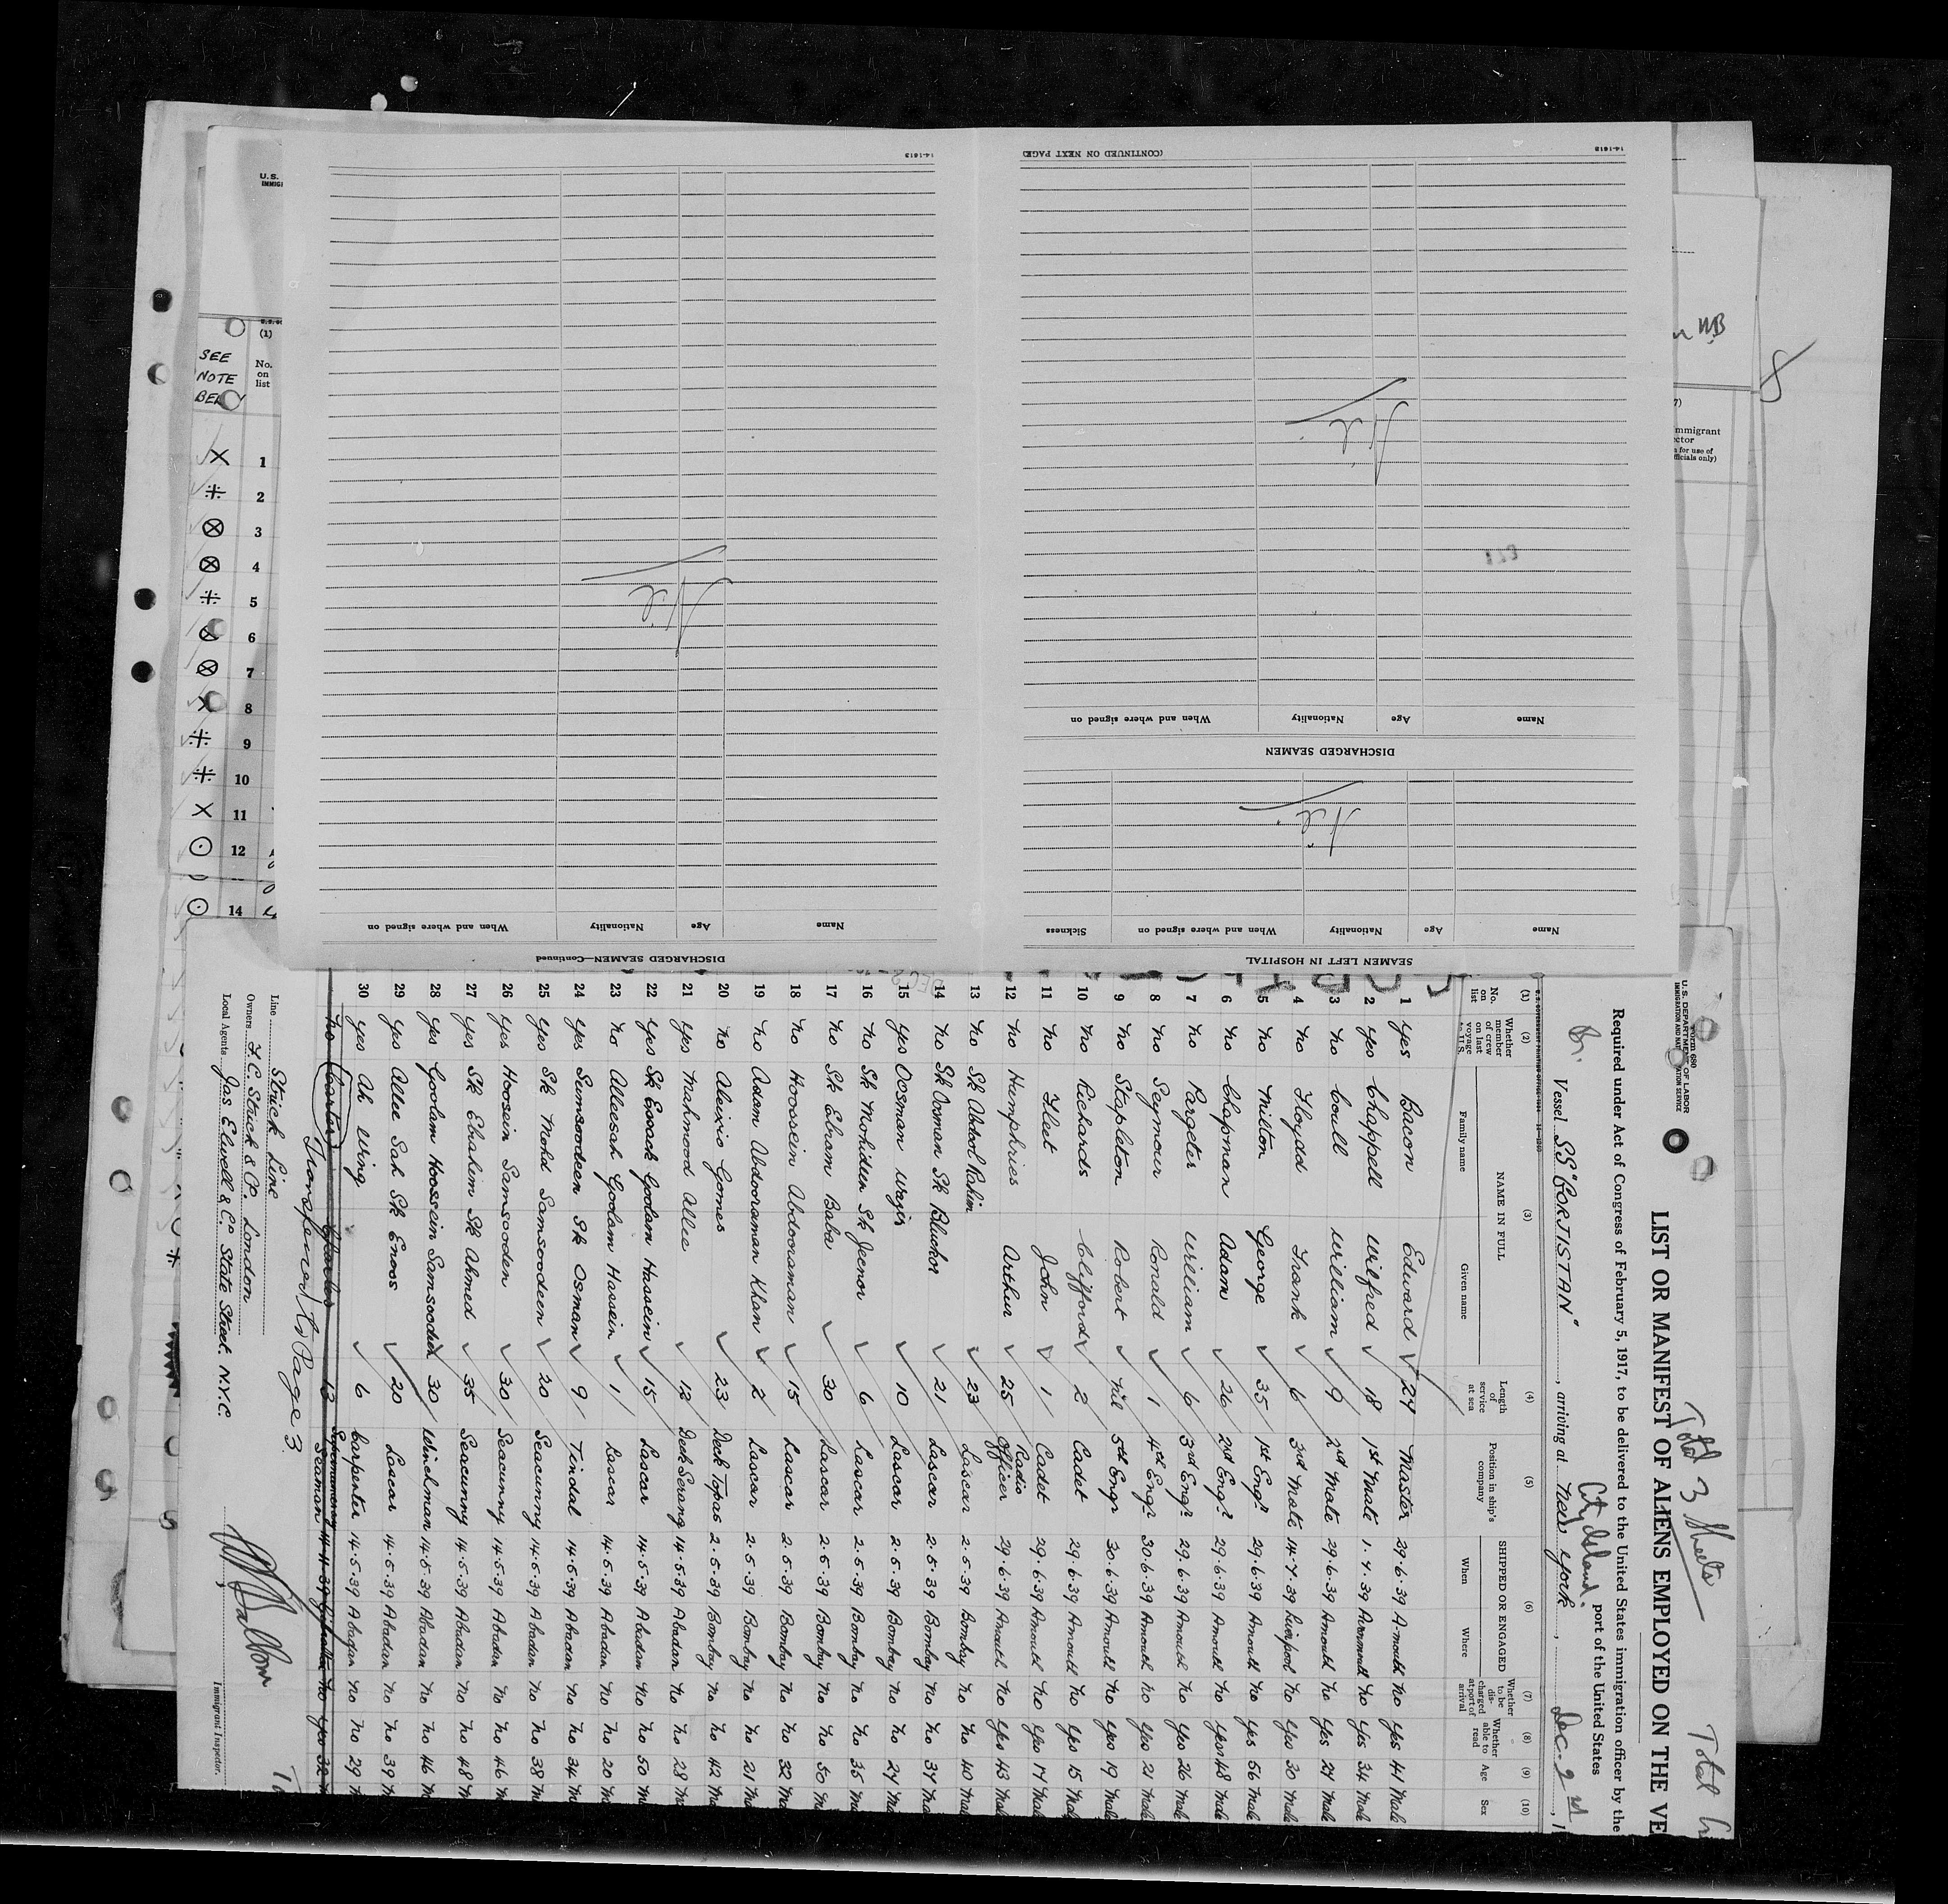 Total 3 Sheets
Form 680
U.S. DEPARTMENT OF LABOR
LIST OR MANIFEST OF ALIENS EMPLOYED ON THE VE
Required under Act of Congress of February 5, 1917, to be delivered to the United States immigration officer by the
City Island.
Vessel SS "GORJISTAN", arriving at New York, Dec. 2nd, 1
port of the United States
(1) (2) (3) (4) (5) (6) (7) (8) (9) (10)
No. on list
Whether member of crew on last voyage to U.S.
NAME IN FULL
Family name Given name
Length of service at sea
Position in ship's company
SHIPPED OR ENGAGED
When Where
Whether to be discharged at port of arrival
Whether able to read
Age
Sex
1 Yes Bacon Edward 27 Master 29.6.39 A-mouth No Yes 41 Male
2 Yes Chappell Wilfred 18 1st Mate 1.7.39 Avonmouth No Yes 34 Male
3 No Coull William 9 2nd Mate 29.6.39 Amouth No Yes 27 Male
4 No Floydd Frank 6 3rd Mate 14.7.39 Liverpool No Yes 30 Male
5 No Milton George 35 1st Engr. 29.6.39 Amouth No Yes 56 Male
6 No Chapman Adam 26 2nd Engr. 29.6.39 Amouth No Yes 48 Male
7 No Pargeter William 6 3rd Engr. 29.6.39 Amouth No Yes 26 Male
8 No Seymour Ronald 1 4th Engr. 30.6.39 Amouth No Yes 21 Male
9 No Stapleton Robert Nil 5th Engr 30.6.39 Amouth No Yes 19 Male
10 No Richards Clifford 2 Cadet 29.6.39 Amouth No Yes 15 Male
11 No Fleet John 1 Cadet 29.6.39 Amouth No Yes 17 Male
12 No Humphries Arthur 25 Radio Officer 29.6.39 Amouth No Yes 43 Male
13 No Sk Abdool Rahim 23 Lascar 2.5.39 Bombay No No 40 Male
14 No Sk Osman Sk Bluckor 21 Lascar 2.5.39 Bombay No No 37 Ma
15 Yes Oosman Wazir 10 Lascar 2.5.39 Bombay No No 27 Ma
16 No Sk Mohiden Sk Jeenor 6 Lascar 2.5.39 Bombay No No 35 Ma
17 No Sk Ebram Baba 30 Lascar 2.5.39 Bombay No No 50 M
18 No Hoosein Abdooraman 15 Lascar 2.5.39 Bombay No No 32 Ma
19 No Adam Abdooraman Khan 2 Lascar 2.5.39 Bombay No No 21 Ma
20 No Aleixio Gomes 23 Deck Topas 2.5.39 Bombay No No 42 Ma
21 Yes Mahmood Allee 12 Deck Serang 14.5.39 Abadan No No 28 Ma
22 Yes Sk Essack Goolam Hasein 15 Lascar 14.5.39 Abadan No No 50 M
23 No Alleesah Goolam Hassein 1 Lascar 14.5.39 Abadan No No 20 M
24 Yes Sumsoodeen Sk Osman 9 Tindal 14.5.39 Abadan No No 34 Ma
25 Yes Sk Mohd Samsoodeen 20 Seacunny 14.5.39 Abadan No No 38 M
26 Yes Hoosein Samsooden 30 Seacunny 14.5.39 Abadan No No 46 M
27 Yes Sk Ebrahim Sk Ahmed 35 Seacunny 14.5.39 Abadan No No 48 M
28 Yes Goolam Hoossein Samsoodeen 30 Winchman 14.5.39 Abadan No No 46 M
29 Yes Allee Sah Sk Enoos 20 Lascar 14.5.39 Abadan No No 39 M
30 Yes Ah Wing 6 Carpenter 14.5.39 Abadan No No 29
No Carter Charles 12 Supernumerary Seaman 14.11.39 Gibraltar No Yes 32
Transferred to Page 3
Line Strick Line
Owners F.C. Strick & Co. London
Local Agents Jas. Elwell & Co. State Street. N.Y.C.
Immigrant Inspector.
SEAMEN LEFT IN HOSPITAL
Name Age Nationality When and where signed on Sickness
Nil
DISCHARGED SEAMEN
Name Age Nationality When and where signed on
Nil
(CONTINUED ON NEXT PAGE)
14-1613
DISCHARGED SEAMEN—Continued
Name Age Nationality When and where signed on
Nil
14-1613
U.S.
IMMIGI
(1)
No. on list
SEE
NOTE
1
2
3
4
5
6
7
8
9
10
11
12
14